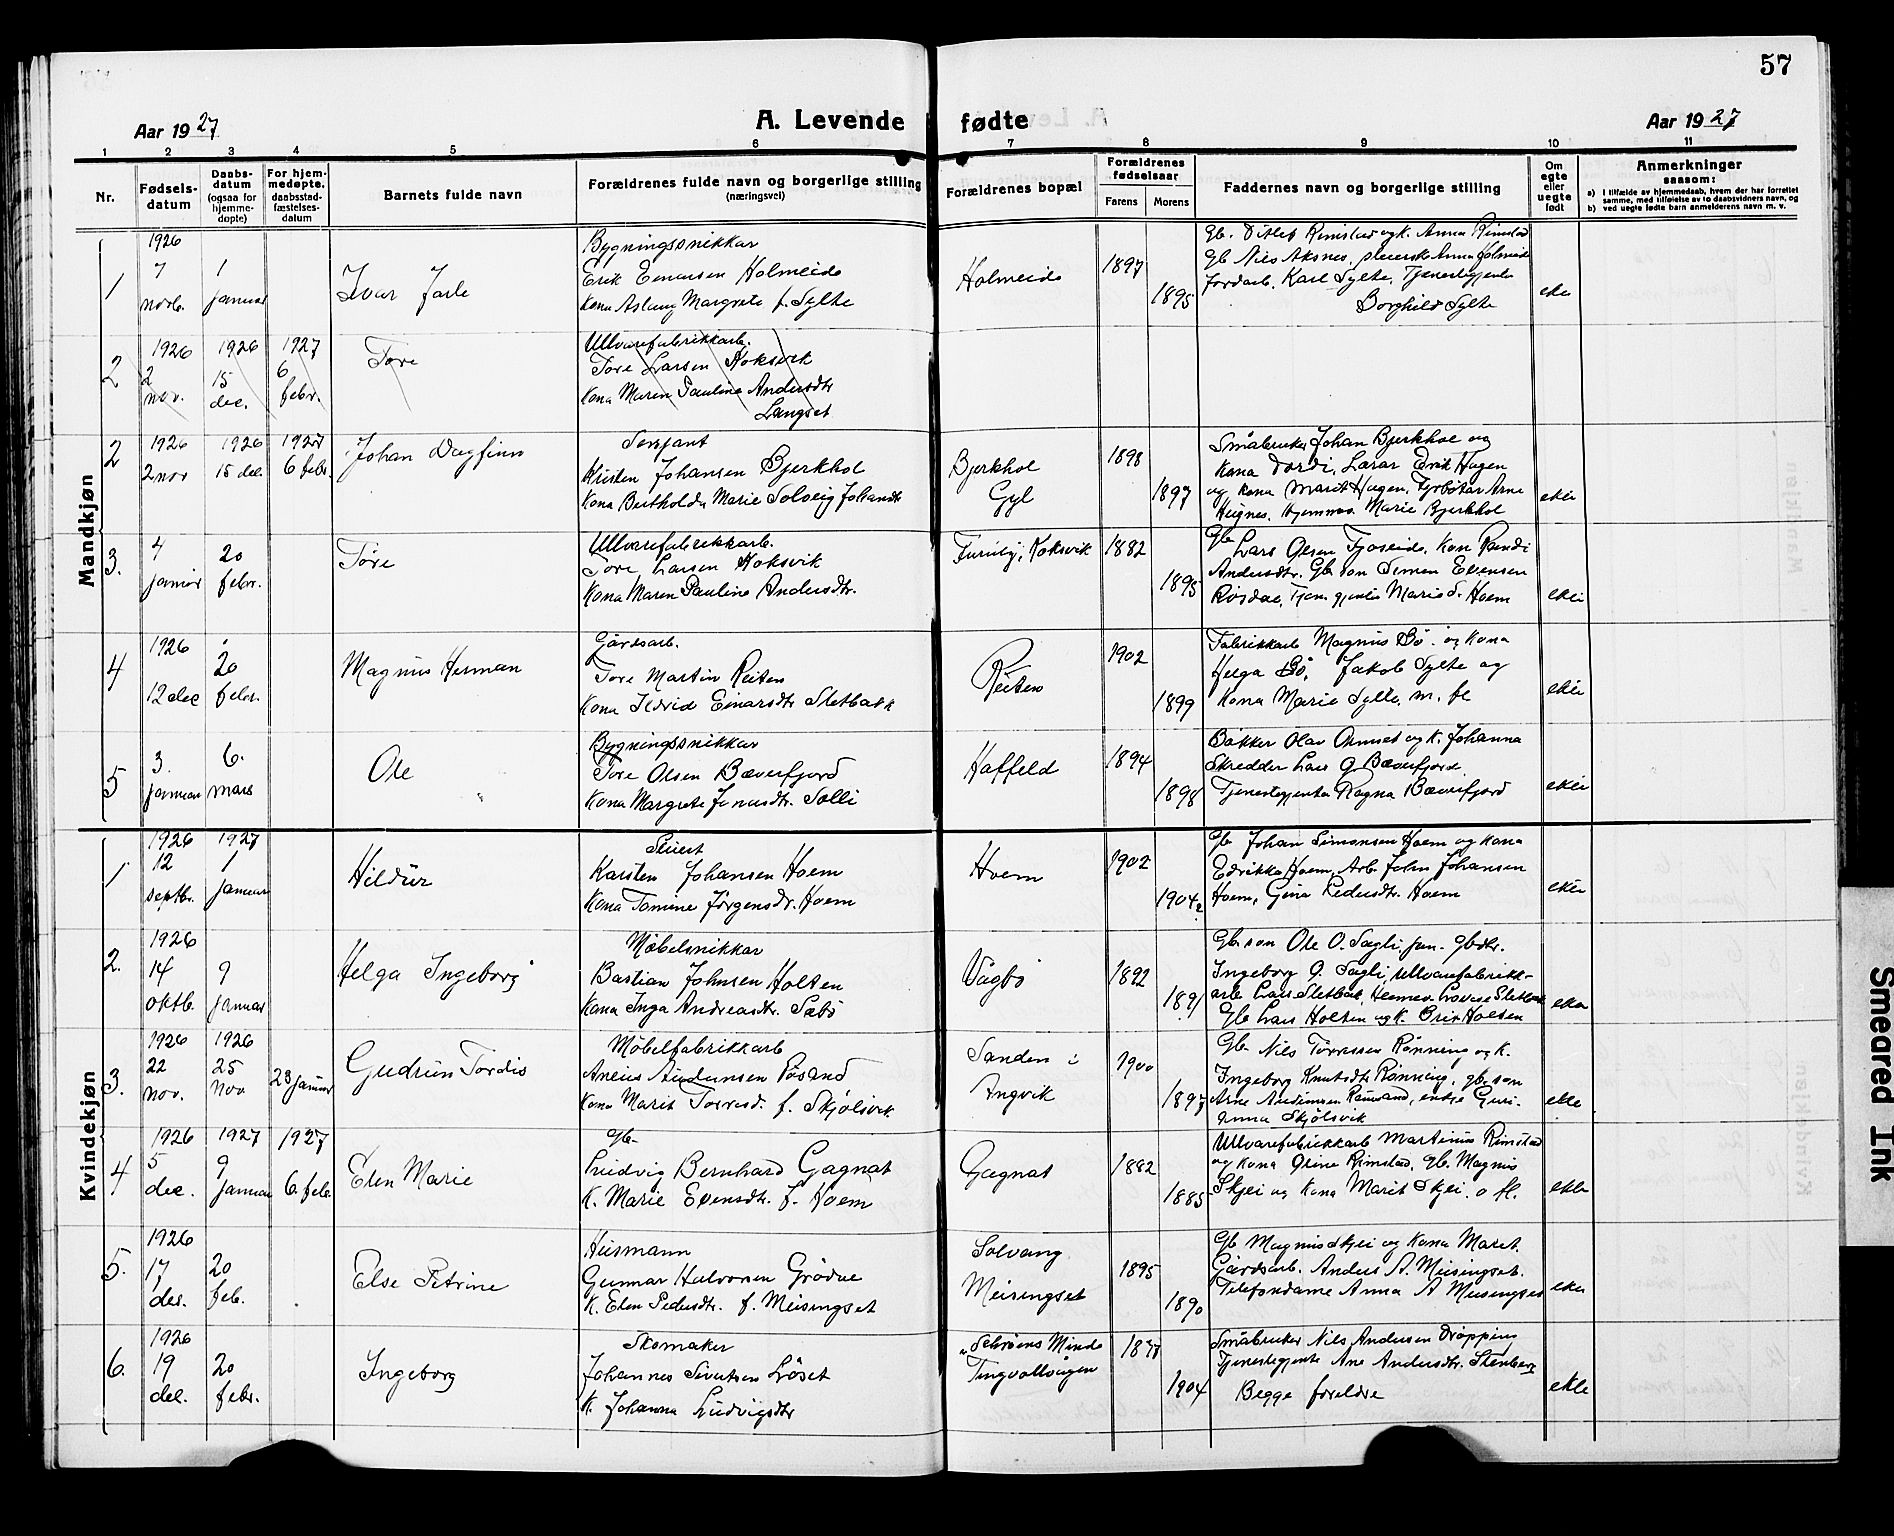 57
Aar 1927
A. Levende fødte
Aar 1927
1 2 3 4 5 6 7 8 9 10 11
Nr.
Fødsels-
datum
Daabs-
datum
(ogsaa for
hjemme-
døpte)
For hjem-
medøpte,
daabsstad-
fæstelses-
datum
Barnets fulde navn
Forældrenes fulde navn og borgerlige stilling
(næringsvei)
Forældrenes bopæl
Forældrenes
fødselsaar
Farens
Morens
Faddernes navn og borgerlige stilling
Om
egte
eller
uegte
født
Anmerkninger
saasom:
a) I tilfælde av hjemmedaab, hvem der har forrettet
samme, med tilføielse av to daabsvidners navn, og
b) ved uegte fødte barn anmelderens navn m. v.
Mandkjøn
1
1926
7
novb.
1
januar
Ivar Jarle
Bygningssnikkar
Erik Einarsen Holmeide
Kona Aslaug Margrete f. Sylte
Holmeide
1897
1895
Gb. Ditlef Rimstad og k. Anna Rimstad
Gb Nils Aksnes, Anna Holmeide
Jordarb. Karl Sylte, Tjenestegjente
Borghild Sylte
2
1926
2
nov.
1926
15
dec.
1927
6
febr.
Tore
Ullvarefabrikkarb.
Tore Larsen Koksvik
Kona Maren Pauline Andersdtr
Langset
2
1926
2 nov
1926
15 dec.
1927
6 febr.
Johan Dagfinn
Serjant
Kristen Johansen Bjerkhol
Kona Bertholda Marie Solveig Johansdtr
Bjerkhol
Gyl
1898
1897
Småbruker Johan Bjerkhol og
Kona Dordi, Lærar Erik Hagen
og kona Marit Hagen, Fyrbøtar Arne
Heignes, Hjemmev. Marie Bjerkhol
ekte
3.
4
januar
20
febr.
Tore
Ullvarefabrikkarb.
Tore Larsen Koksvik
Kona Maren Pauline Andersdtr.
Furuly, Koksvik
1882
1895
Gb Lars Olsen Fjøseide, Kon Randi
Andersdtr. Gb. son Simen Evensen
Røsdal, Tjen. gjenta Marie d. Hoem
ekte
4
1926
12 dec
20
febr.
Magnus Herman
Gårdsarb.
Tore Martin Reiten
Kona Ildrid Einarsdtr Sletbakk
Reiten
1902
1899
Fabrikkarb Magnus Bø og Kona
Helga Bø, Jakob Sylte og
Kona Marie Sylte, m. fl
ekte
5
3.
januar
6.
mars
Ole
Bygningssnikkar
Tore Olsen Bæverfjord
Kona Margrete Jonasdtr. Solli
Haffeld
1894
1898
Bøkker Olav Ormset og k. Johanna
Skredder Lars O. Bæverfjord
Tjenestegjenta Ragna Bæverfjord
ekte
Kvindekjøn
1
1926
12
septbr.
1927
1
januar
Hildur
Karsten Johansen Hoem
Kona Tomine Jørgensdr. Hoem
Hoem
1902
1904
Gb Johan Simonsen Hoem og Kona
Edrikka Hoem, Arb. John Johansen
Hoem, Gina Pedersdtr. Hoem
ekte
2.
1926
14
oktb.
9
januar
Helga Ingeborg
Møbelsnikkar
Bastian Johnsen Holten
Kona Inga Andreasdtr. Sæbø
Vågbø
1892
1891
Gb. son Ole O. Sagli, jun. gbdtr.
Ingeborg O. Sagli Ullvarefabrikk-
arb. Lars Sletbak, Hemmev. Lovise Sletbak
Gb Lars Holten og k. Brit Holten
ekte
3.
1926
22
nov.
1926
25
nov
23 januar
Gudrun Tordis
Møbelfabrikkarb
Aneus Audunsen Røsand
Kona Marit Torresd. f. Skjølsvik
Sanden i
Angvik
1900
1897
Gb. Nils Torressen Rønning og k.
Ingeborg Knutsdtr Rønning, gb. son
Arne Audunsen Røsand, enkje Guri-
anna Skjølsvik
ekte
4
1926
5
dec.
1927
9
januar
1927
6. feb.
Elen Marie
Gb.
Ludvig Bernhard Gagnat
K. Marie Evensdtr. f. Hoem
Gagnat
1882
1885
Ullvarefabrikkarb Martinus Rimstad
og Kona Gine Rimstad, Gb. Magnus
Skjei og Kona Marit Skjei o fl.
ekte
5.
1926
17
des.
20
feb.
Else Petrine
Husmann
Gunnar Halvorsen Grødal
K. Elen Pedersdtr. f. Meisingset
Solvang
Meisingset
1895
1890
Gb Magnus Skjei og Kona Marit.
Gårdsarb. Anders A. Meisingset.
Telefondame Anna A Meisingset
ekte
6.
1926
19
dec.
20
febr.
Ingeborg
Skomaker
Johannes Sivertsen Løset
K. Johanna Ludvigsdtr
„Schrøens Minde
Tingvollvågen
1904
Småbruker Nils Andersen Drøpping
Tjenestegjente Ane Andersdtr. Stenberg
Begge foreldre
ekte
Smeared Ink